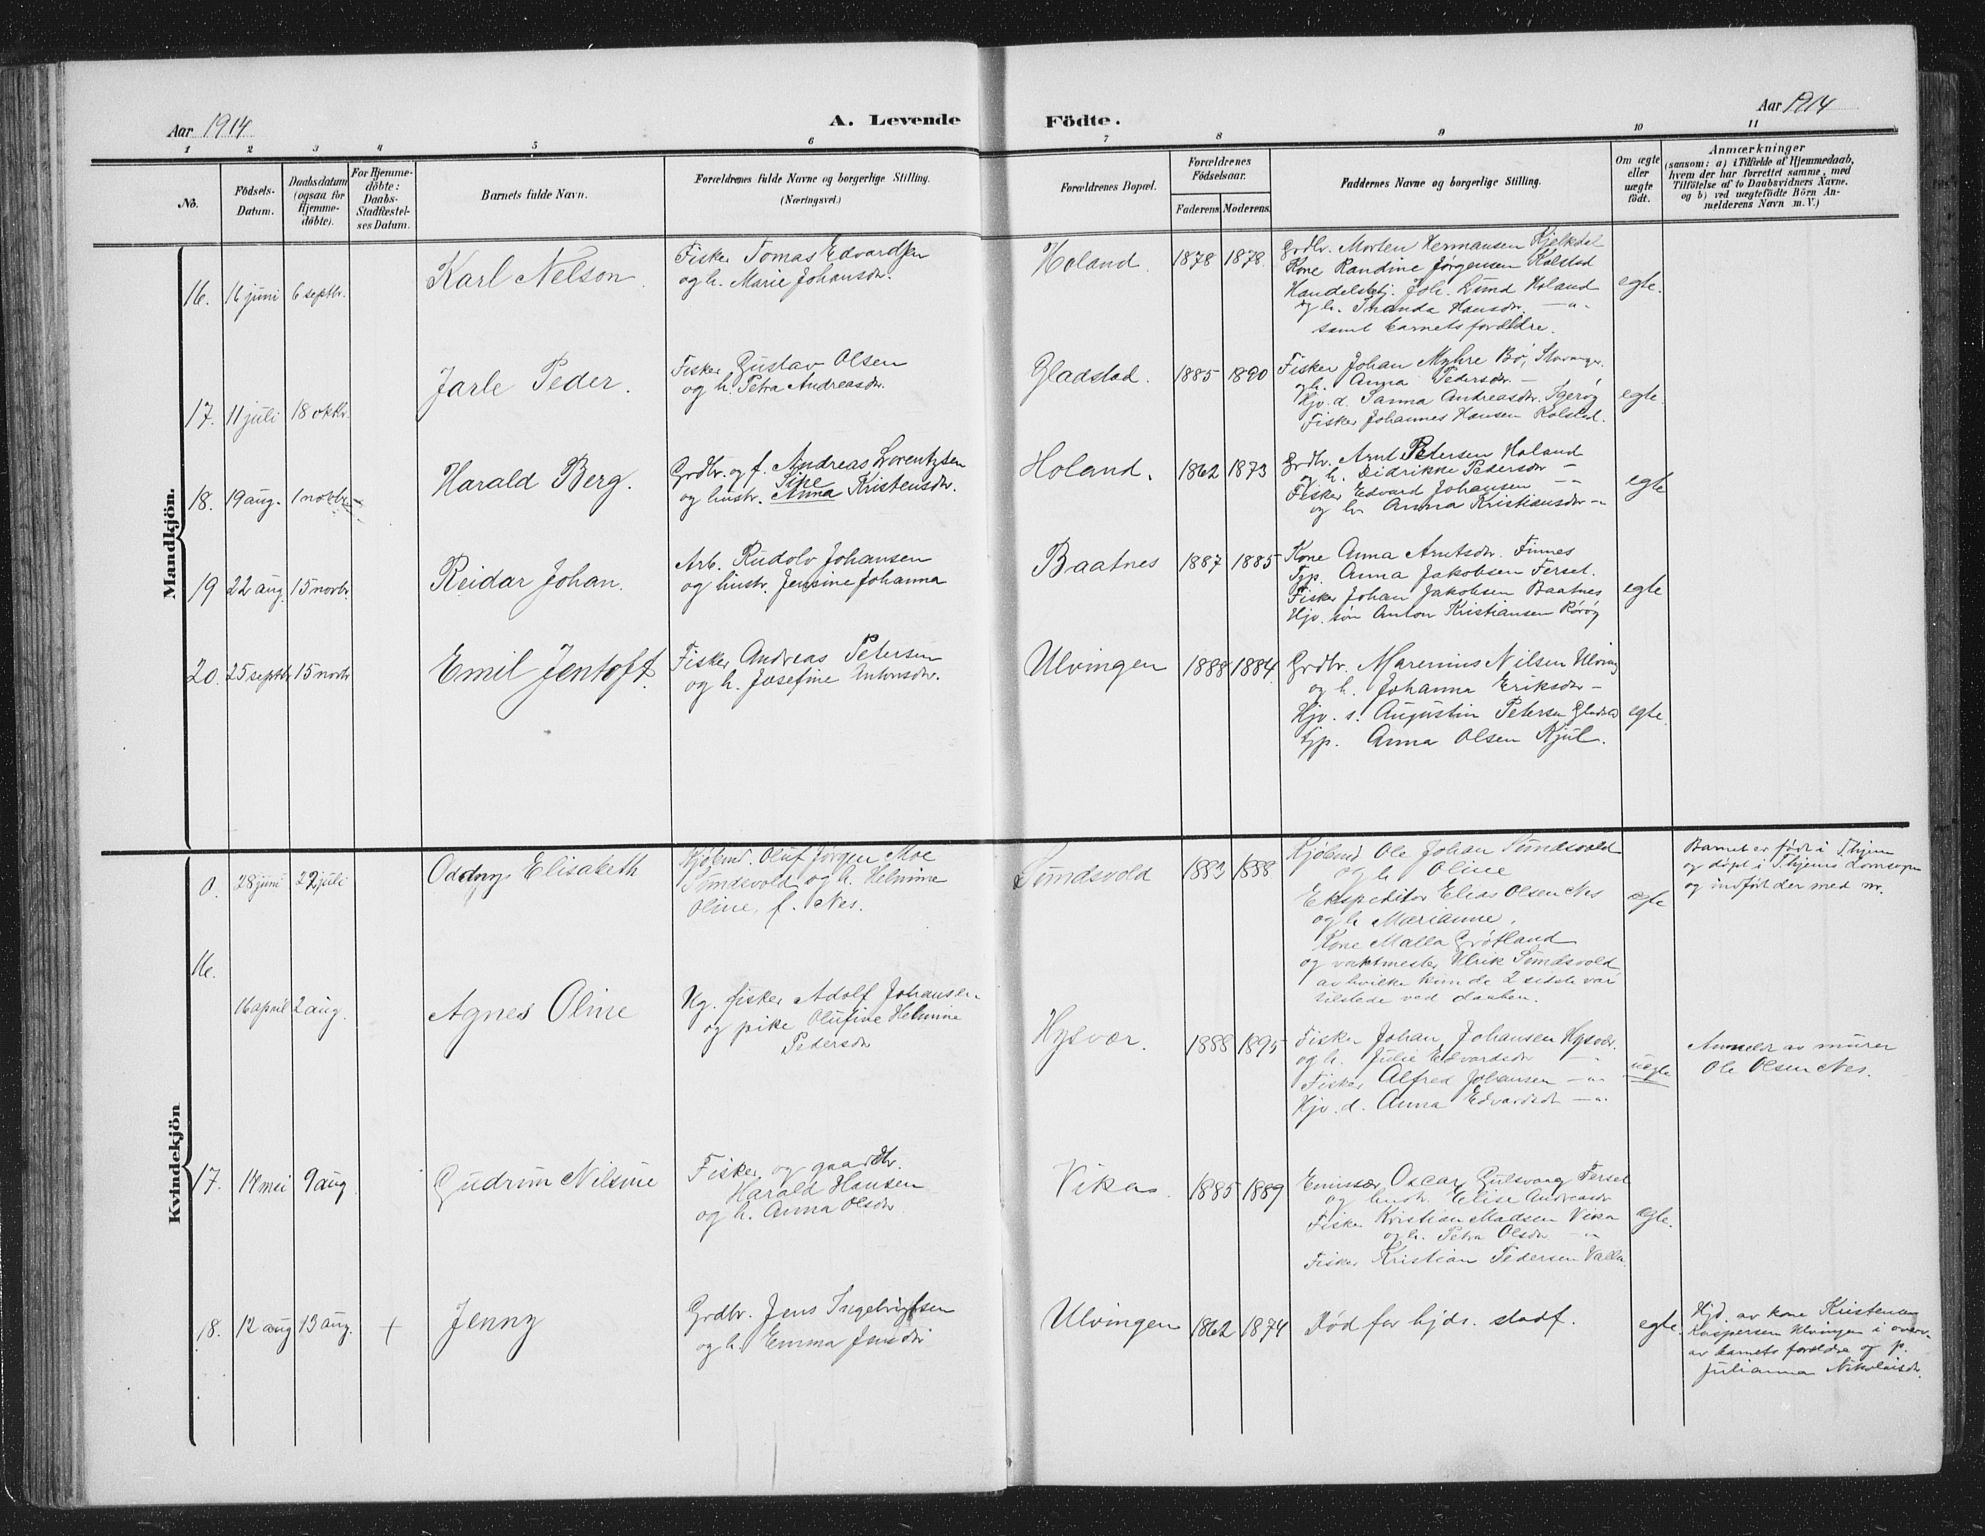 Aar 1914
A. Levende Födte.
Aar 1914
1 2 3 4 5 6 7 8 9 10 11
No.
Födsels-Datum.
Daabsdatum (ogsaa for Hjemme-döbte).
For Hjemme-döbte: Daabs-Stadfæstel-ses Datum.
Barnets fulde Navn.
Forældrenes fulde Navne og borgerlige Stilling. (Næringsvei.)
Forældrenes Bopæl.
Forældrenes Födselsaar.
Faderens. Moderens.
Faddernes Navne og borgerlige Stilling.
Om ægte eller uægte født.
Anmærkninger
(sansom: a) i Tilfælde af Hjemmedaab, hvem der har forrettet samme, med Tilföielse af to Daabsvidners Navne, og b) ved uægtefödte Börn Anmelderens Navn m. V.)
Mandkjön.
16. 16 juni 6 septbr. Karl Nelson.
Fisker Tomas Edvardsen
og h. Marie Johansdr.
Holand. 1878 1878
Grdbr. Morten Hermansen Hjelkdal
Kone Randine Jørgensen Kolstad
Handelsbtj. Joh. Lund Holand
og h. Hansdr. —"—
samt barnets forældre.
egte.
17. 11 juli 18 oktbr. Jarle Peder.
Fisker Gustav Olsen
og h. Petra Andreasdr.
Gladstad. 1885 1890
Fisker Johan Myhre Bø, Stavanger
og h. Anna Pedersdr. —
Hjv. d. Sanna Andreasdr. Igerøy
Fisker Johannes Hansen Kolstad.
egte.
18. 19 aug. 1 Harald Berg.
Grdbr. og f. Andreas Lorentzsen
og hustr. Anna Kristensdr.
Holand. 1862 1873
Grdbr. Arnt Petersen Holand
og h. Didrikke Pedersdr —
Fisker Edvard Johansen —"—
og h. Anna Kristiansdr —"—
egte
19 22 aug. 15 novbr. Reidar Johan.
Arb. Rudolv Johansen
og hustr. Jensine Johanna
Baatnes 1887 1885
Kone Anna Arntsdr. Finnes
Gp. Anna Jakobsen Forset.
Fisker Johan Jakobsen Baatnes
Hjv. søn Anton Kristiansen Rørøy
egte
20. 25 septbr 15 novbr Emil Jentoft.
Fisker Andreas Petersen
og h. Josefine Antonsdr.
Ulvingen 1888 1884
Grdbr. Marenius Nilsen Ulving
og h. Johanna Eriksdr —
Hjv. s. Augustin Petersen Gladstad
Gp. Anna Olsen Kjul.
egte.
Kvindekjön
0. 28 juni 22 juli Oddny Elisabeth
Kjøbmd. Oluf Jørgen Moe
Sundsvold og h. Helmine
Oline, f. Nes.
Sundsvold 1883 1888
Kjøbmd Ole Johan Sundsvold
og h Oline
Ekspeditør Elias Olsen Nes
og h Marianne.
Kone Malla Grøtland
og vaktmester Ulrik Sundsvold
av hvilke kun de 2 sidste var
tilstede ved daaben.
ægte
Barnet er født i Thjem
og døpt i Thjems
og indført der med nr.
16. 16 april 2 aug. Agnes Oline
Ug. fisker Adolf Johansen
og pike Olufine Helmine
Pedersdr
Hysvær. 1888 1895
Fisker Johan Johansen Hysvær.
og h. Julie Edvardsdr —"—
Fisker Alfred Johansen —"—
Hjv. d. Anna Edvardsdr —"—
uegte
Anmeldt av murer
Ole Olsen Nes.
17. 14 mei 9 aug Gudrun Nelsine
Fisker og gaardbr.
Harald Hansen
og h. Anna Olsdr
Vikas 1885 1889
Emissær Oscar Gulsvaag Forset
og hustr. Elise Andreasdr
Fisker Kristian Madsen Vika
og h. Petra Olsdr —"—
Fisker Kristian Pedersen Valla.
ægte.
18. 12 aug 13 aug. + Jenny
Grdbr. Jens Ingebrigtsen
og h. Emma Jensdr
Ulvingen 1862 1874
Død før hjds. stadf.
egte.
Hjd. av kone
Kaspersen Ulvingen i overv.
av barnets forældre og p.
Julianna Nikolaisdr.